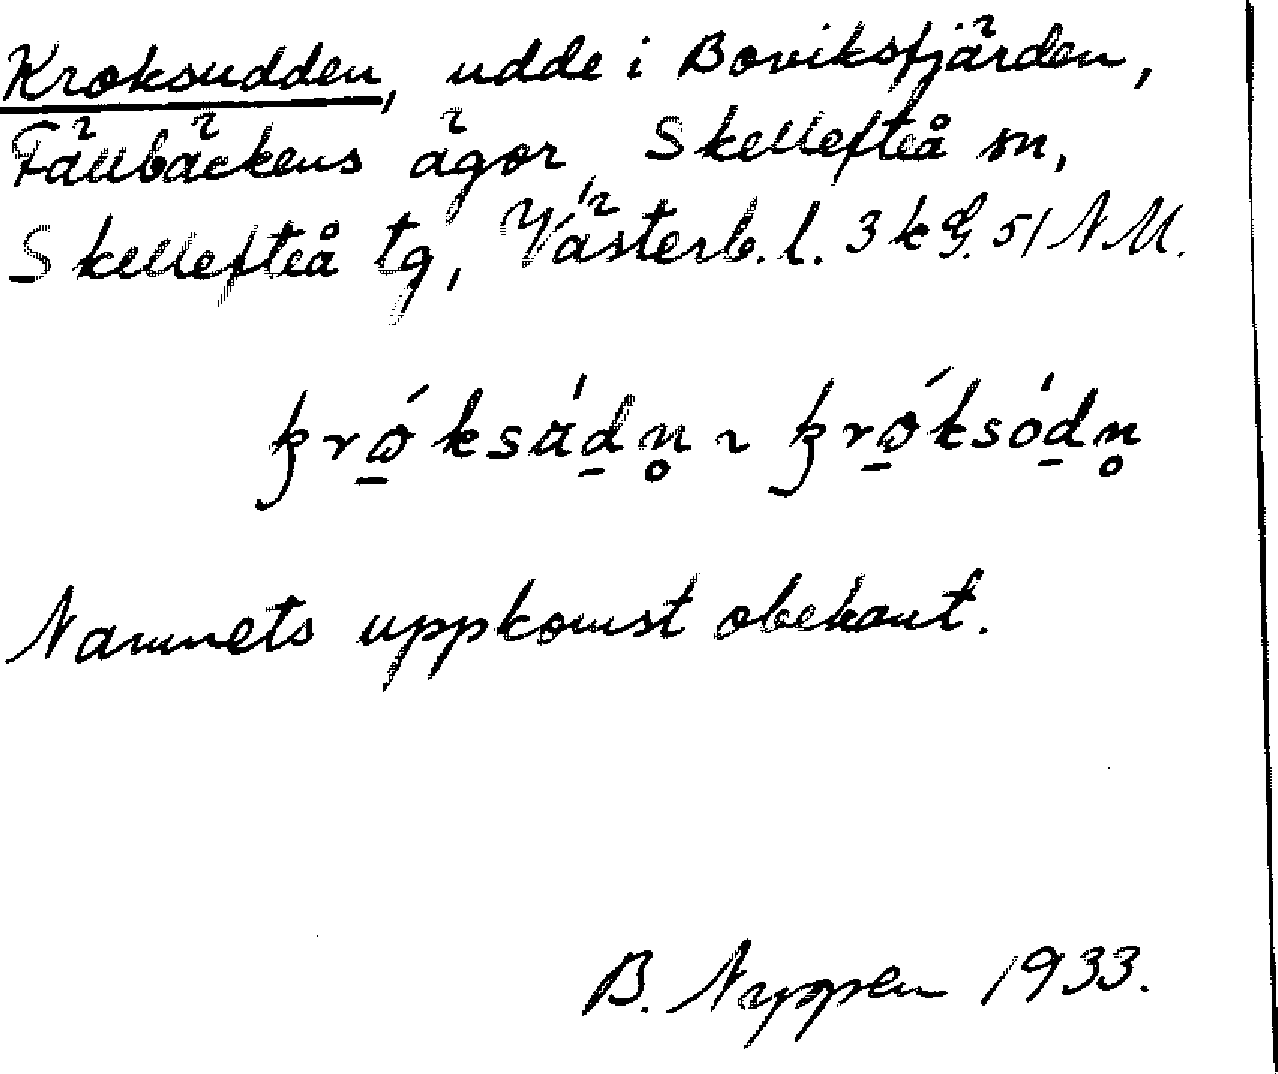 Kroksudden, udde i Boviksfjärden,
Fällbäckens ägor Skellefteå sn,
Skellefteå tg, Västerb. l. 3 k G. 51 N M.
krǿksädn̥ ~ krǿksódn̥
Namnets uppkomst obekant.
B. Nyppen 1933.